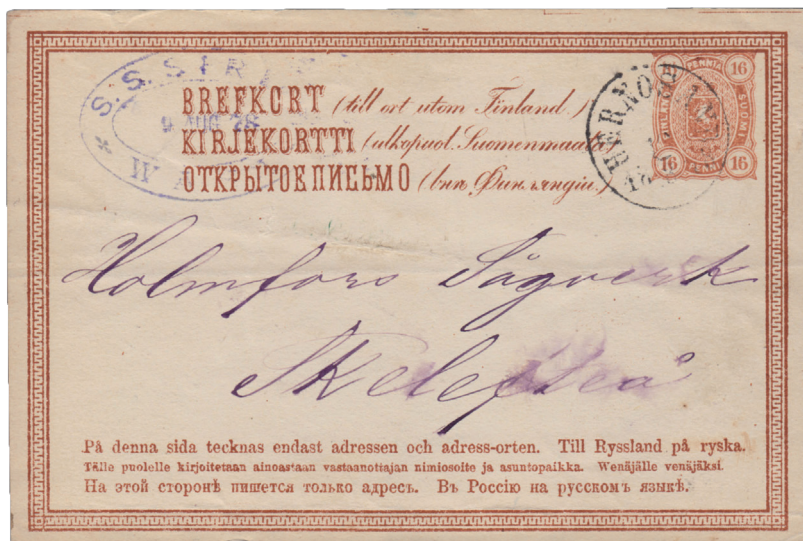 S. S.
9 AUG 78
BREFKORT (till ort utom Finland.)
KIRJEKORTTI (ulkopuol. Suomenmaata)
ОТКРЫТОЕ ПИСЬМО (внѣ Финляндіи.)
PENNIÄ
16 16
SUOMI
16 16
HERNÖ
Holmfors Sågverk
Skelefteå
På denna sida tecknas endast adressen och adress-orten. Till Ryssland på ryska.
Tälle puolelle kirjoitetaan ainoastaan vastaanottajan nimiosoite ja asuntopaikka. Wenäjälle venäjäksi.
На этой сторонѣ пишется только адресъ. Въ Россію на русскомъ языкѣ.